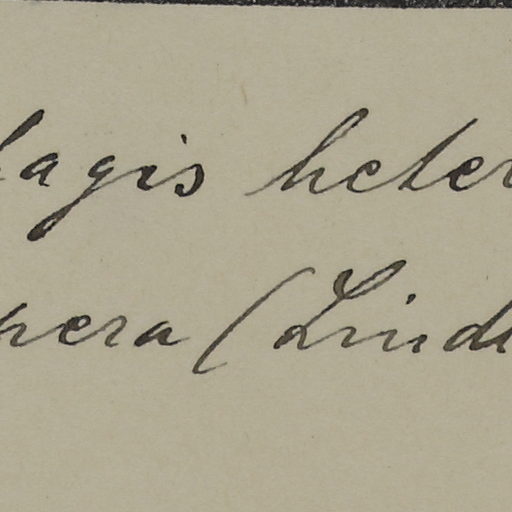 lagis heter
pera (Lind